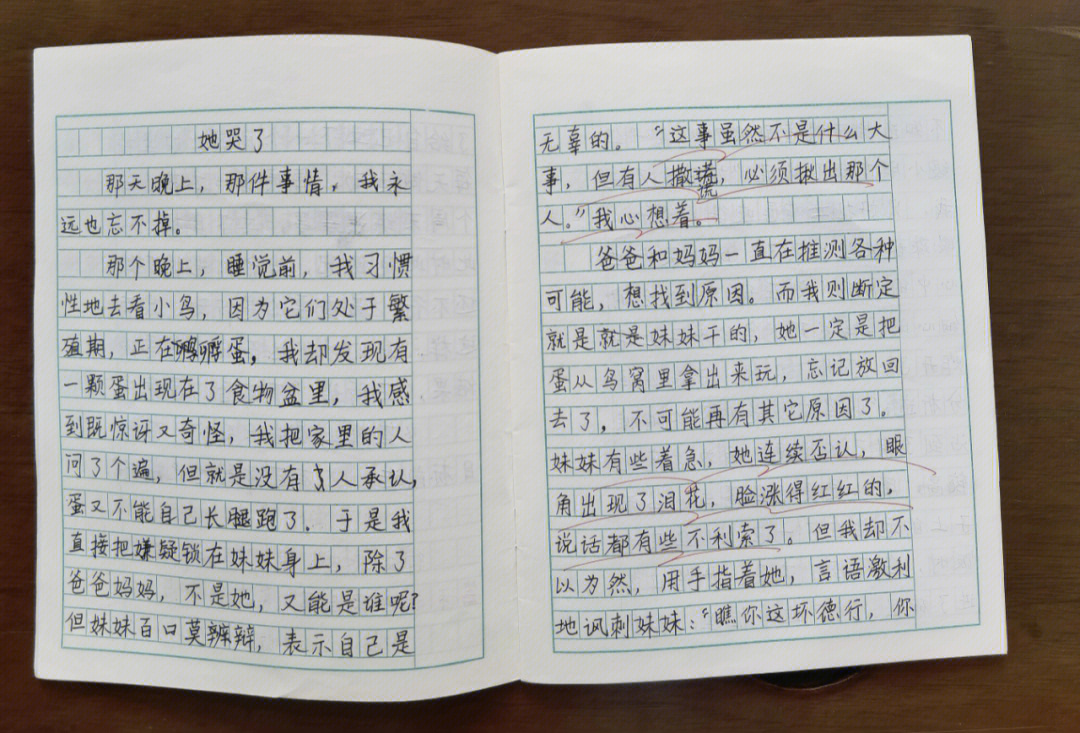 她哭了
那天晚上，那件事情，我永
远也忘不掉。
那个晚上，睡觉前，我习惯
性地去看小鸟，因为它们处于繁
殖期，正在孵蛋，我却发现有
一颗蛋出现在了食物盆里，我感
到既惊讶又奇怪，我把家里的人
问了个遍，但就是没有人承认，
蛋又不能自己长腿跑了．于是我
直接把嫌疑锁在妹妹身上，除了
爸爸妈妈，不是她，又能是谁呢？
但妹妹百口莫辩，表示自己是
无辜的。“这事虽然不是什么大
事，但有人撒谎，必须揪出那个
人。”我心想着。
爸爸和妈妈一直在推测各种
可能，想找到原因。而我则断定
就是就是妹妹干的，她一定是把
蛋从鸟窝里拿出来玩，忘记放回
去了，不可能再有其它原因了。
妹妹有些着急，她连续否认，眼
角出现了泪花，脸涨得红红的，
说话都有些不利索了。但我却不
以为然，用手指着她，言语激利
地讽刺妹妹：“瞧你这坏德行，你